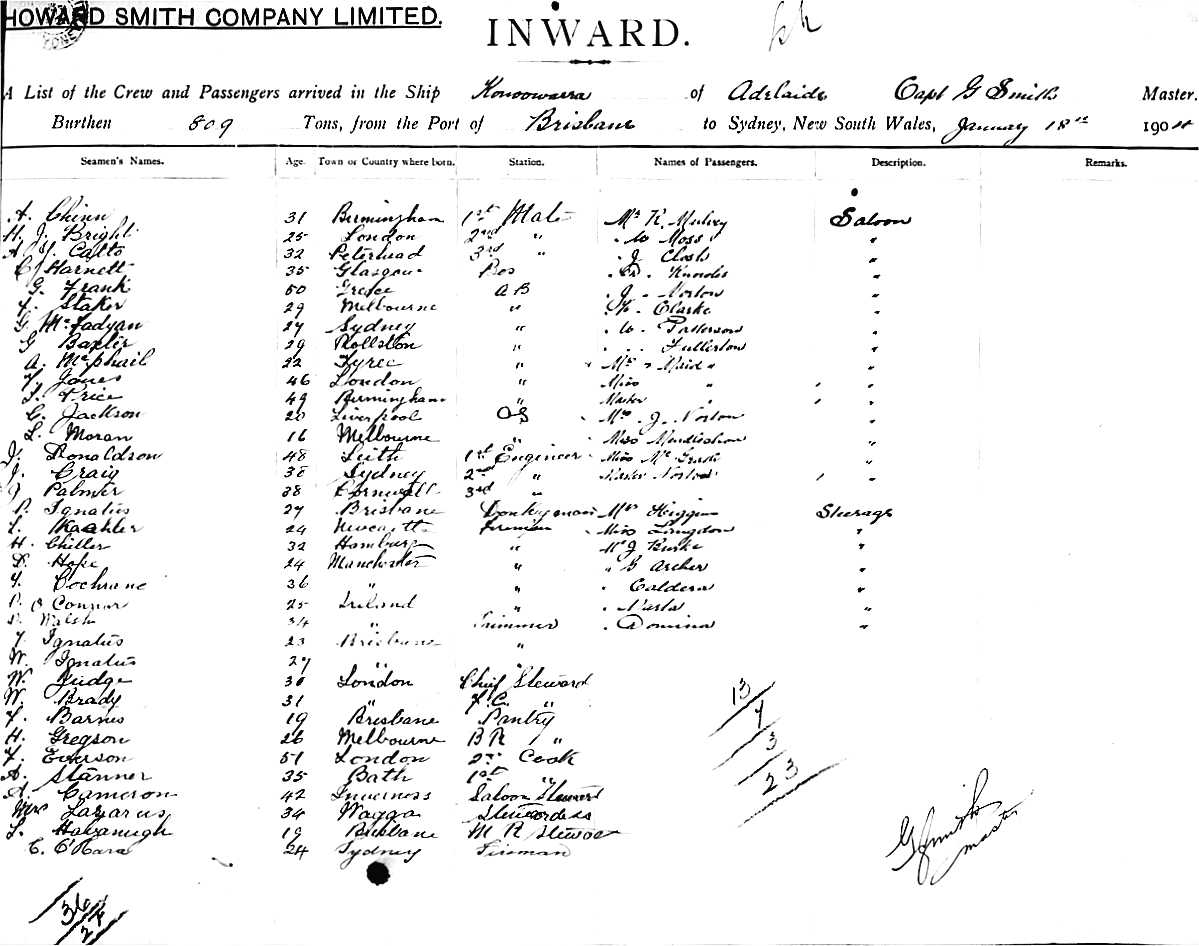 HOWARD SMITH COMPANY LIMITED.
INWARD.
A List of the Crew and Passengers arrived in the Ship Konoowarra of Adelaide Capt G Smith Master.
Burthen 809 Tons, from the Port of Brisbane to Sydney, New South Wales, January 18th 190
Seamen's Names. Age. Town or Country where born. Station. Names of Passengers. Description. Remarks.
A. Chinn 31 Birmingham 1st Mate Mr Saloon
H. J. Bright 25 London 2nd " . W Moss "
Catto 32 Peterhead 3rd " . J "
C Harnett 35 Glasgow Bos . Knowles "
G. Frank 50 Greece AB . J. Norton "
Staker 29 Melbourne " Clarke "
G McFadyan 27 Sydney " . W. Patterson "
G Baxter 29 " . . Fullerton "
A. McPhail 22 Tyree " Mrs & Maid " "
Jones 46 London " Miss " "
Price 49 Birmingham " Master " "
C. Jackson 20 Liverpool OS Mrs J. Norton "
L. Moran 16 Melbourne " Miss "
Donaldson 48 Leith 1st Engineer Miss "
J. Craig 38 Sydney 2nd " Master Norton "
J Palmer 38 Cornwall 3rd "
P. Ignatius 27 Brisbane Donkeyman Mrs Higgins Steerage
Kaehler 24 Fireman Miss Langdon "
H. Chiller 32 Hamburg " Mr J Burke "
D. Hope 24 Manchester " " G Archer "
Cochrane 36 " " . Caldera "
P. O Connor 25 Ireland " . "
Walsh 34 " Trimmer . Domina "
Ignatius 23 Brisbane "
W. Ignatius 27 " "
W. Judge 30 London Chief Steward
W. Brady 31 " F.C. "
Barnes 19 Brisbane Pantry
H. Gregson 26 Melbourne BR "
Everson 51 London 2nd Cook
A. Stanner 35 Bath 1st "
A. Cameron 42 Inverness Saloon Steward
Mrs Lazarus 34 Wagga Stewardess
Kavanagh 19 Brisbane M R Steward
C. O'Hara 24 Sydney Fireman
13
7
3
23
G Smith
master
36